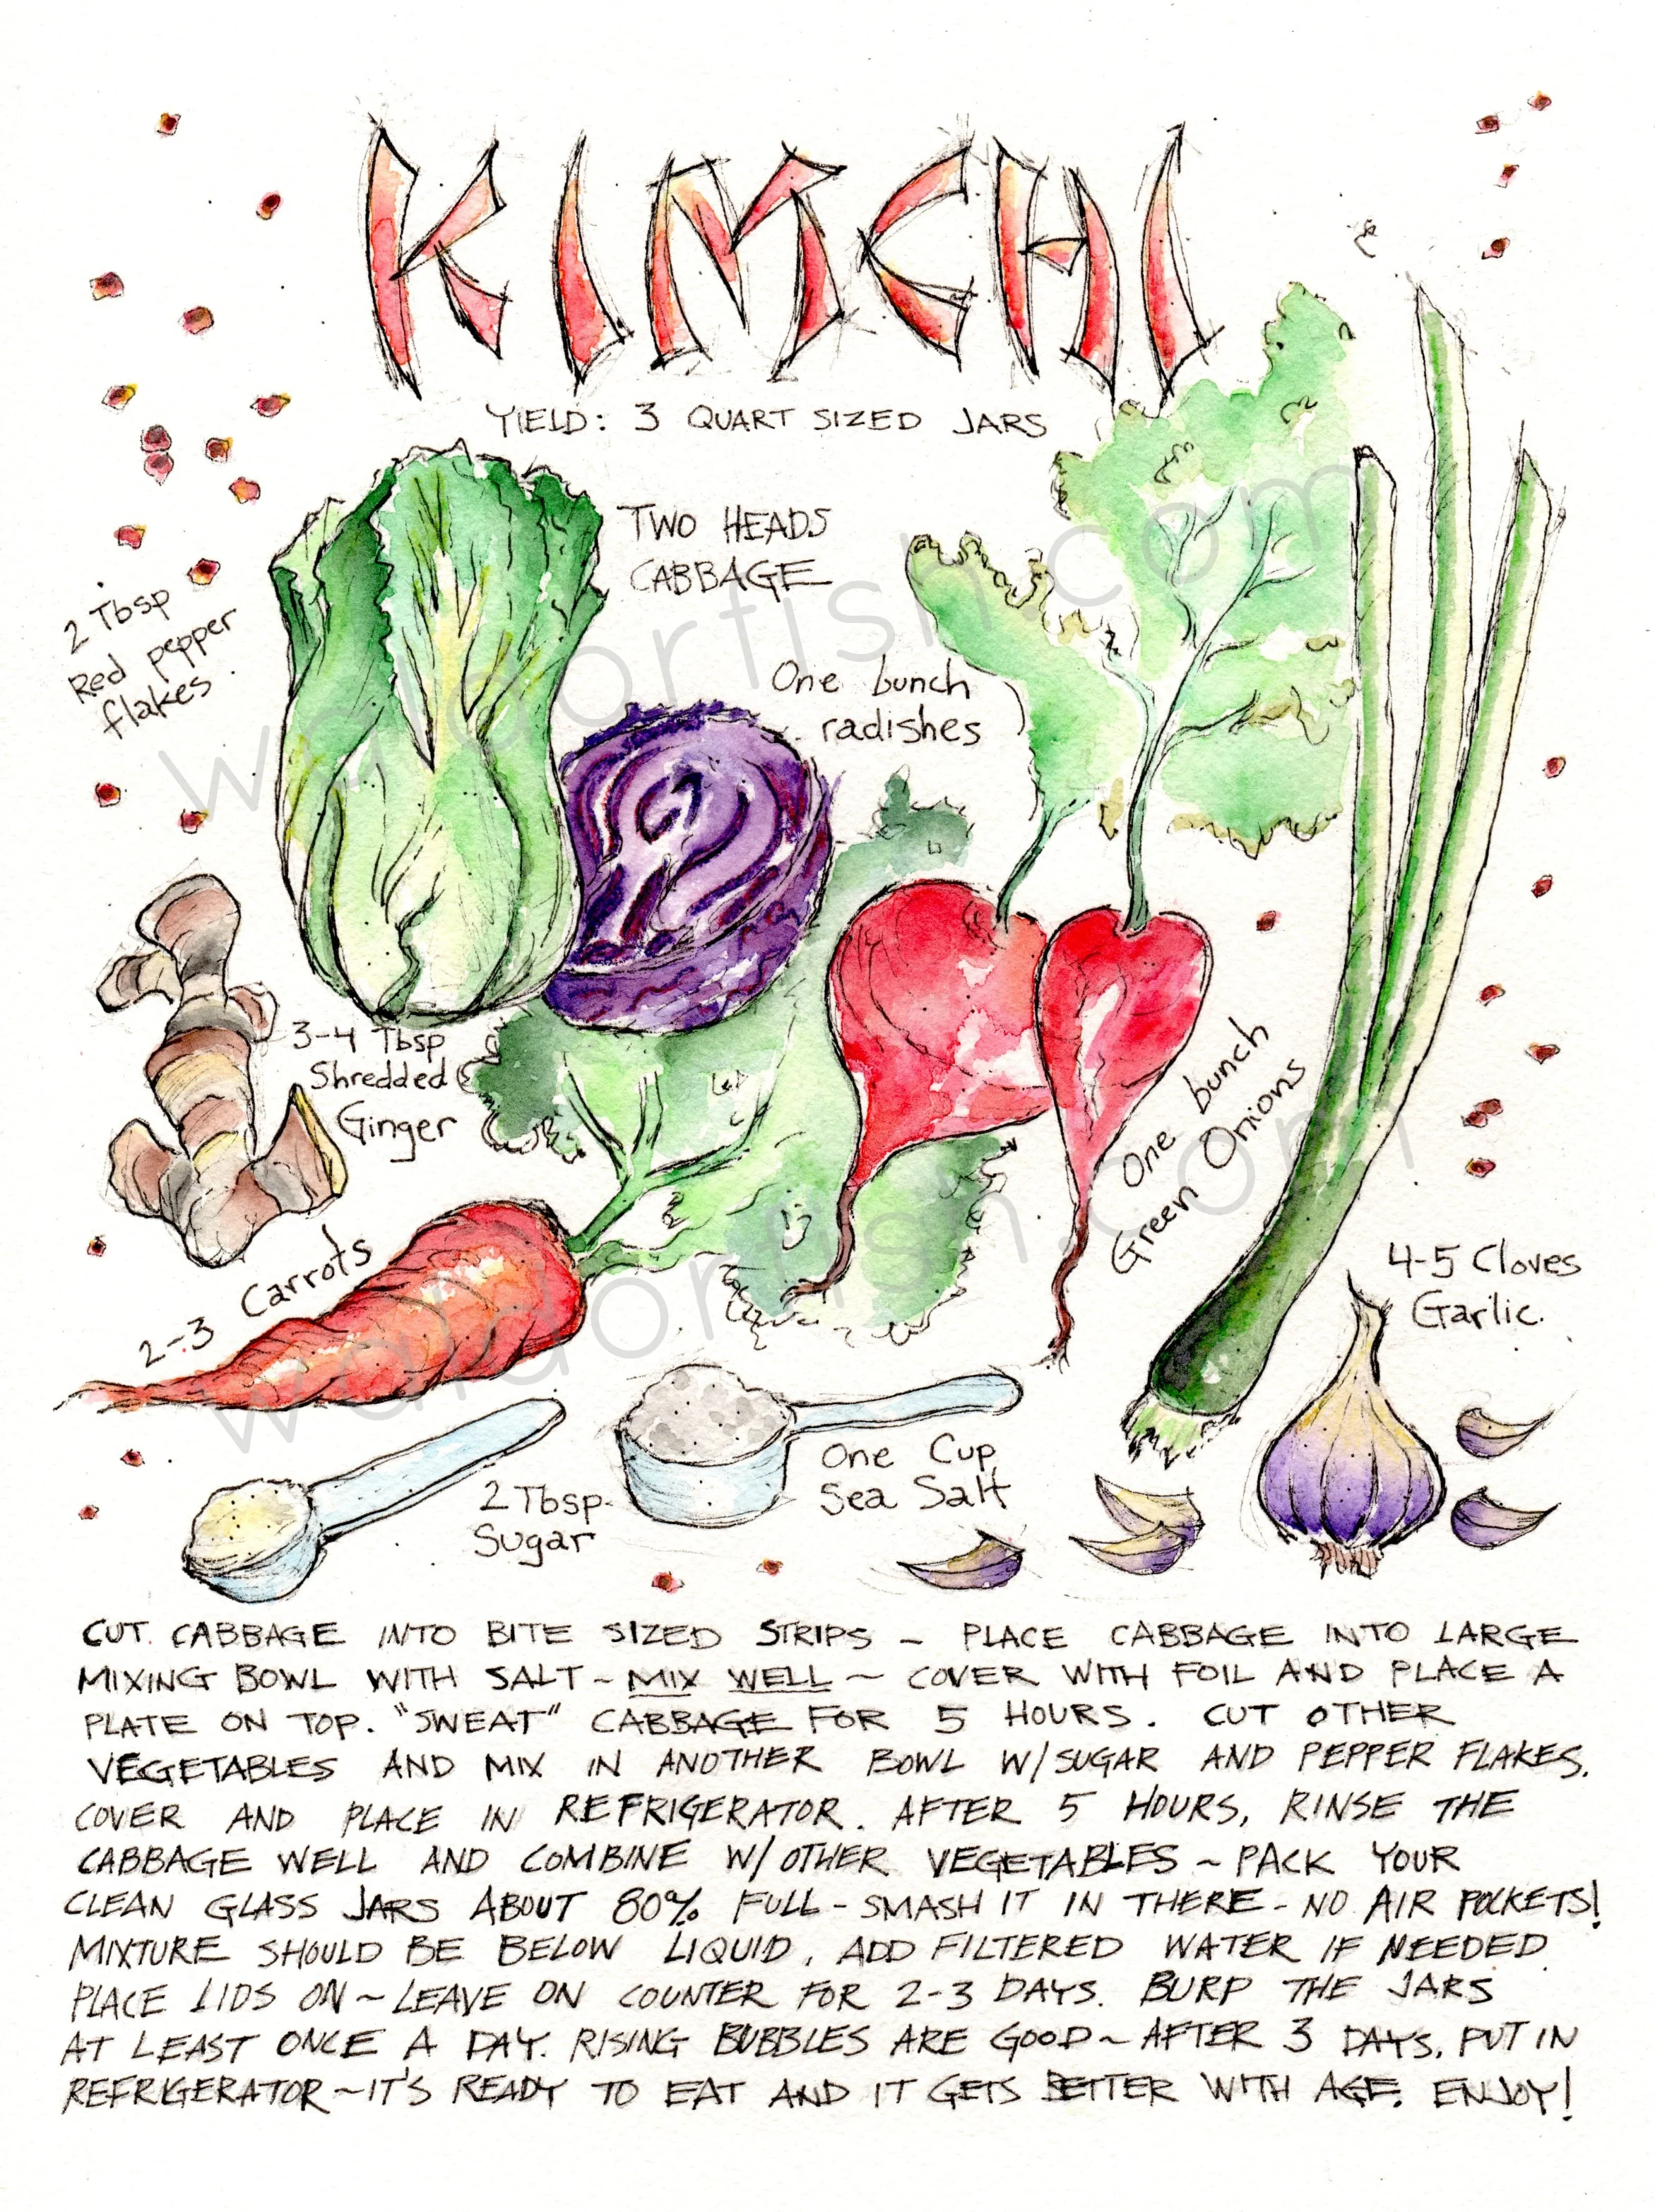 KIMCHI
YIELD: 3 QUART SIZED JARS
TWO HEADS
CABBAGE
2 Tbsp
Red pepper
flakes
One bunch
radishes
waldorfish.com
3-4 Tbsp
Shredded
Ginger
One bunch
Green Onions
2-3 Carrots
4-5 Cloves
Garlic.
waldorfish.com
One Cup
Sea Salt
2 Tbsp
Sugar
CUT CABBAGE INTO BITE SIZED STRIPS ~ PLACE CABBAGE INTO LARGE
MIXING BOWL WITH SALT ~ MIX WELL ~ COVER WITH FOIL AND PLACE A
PLATE ON TOP. "SWEAT" CABBAGE FOR 5 HOURS. CUT OTHER
VEGETABLES AND MIX IN ANOTHER BOWL W/SUGAR AND PEPPER FLAKES.
COVER AND PLACE IN REFRIGERATOR. AFTER 5 HOURS, RINSE THE
CABBAGE WELL AND COMBINE W/ OTHER VEGETABLES ~ PACK YOUR
CLEAN GLASS JARS ABOUT 80% FULL - SMASH IT IN THERE - NO AIR POCKETS!
MIXTURE SHOULD BE BELOW LIQUID, ADD FILTERED WATER IF NEEDED.
PLACE LIDS ON ~ LEAVE ON COUNTER FOR 2-3 DAYS. BURP THE JARS
AT LEAST ONCE A DAY. RISING BUBBLES ARE GOOD ~ AFTER 3 DAYS, PUT IN
REFRIGERATOR ~ IT'S READY TO EAT AND IT GETS BETTER WITH AGE. ENJOY!